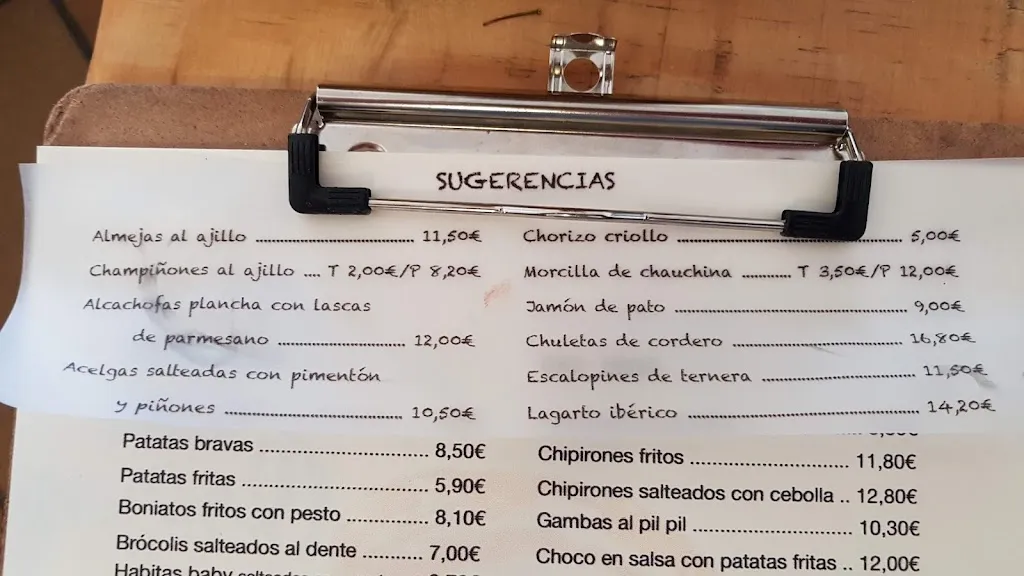 SUGERENCIAS
Almejas al ajillo ........ 11,50€
Champiñones al ajillo .... T 2,00€/P 8,20€
Alcachofas plancha con lascas
de parmesano ........ 12,00€
Acelgas salteadas con pimentón
y piñones ........ 10,50€
Patatas bravas ........ 8,50€
Patatas fritas ........ 5,90€
Boniatos fritos con pesto ........ 8,10€
Brócolis salteados al dente ........ 7,00€
Habitas baby salteadas
Chorizo criollo ........ 5,00€
Morcilla de chauchina ........ T 3,50€/P 12,00€
Jamón de pato ........ 9,00€
Chuletas de cordero ........ 16,80€
Escalopines de ternera ........ 11,50€
Lagarto ibérico ........ 14,20€
Chipirones fritos ........ 11,80€
Chipirones salteados con cebolla .. 12,80€
Gambas al pil pil ........ 10,30€
Choco en salsa con patatas fritas .. 12,00€